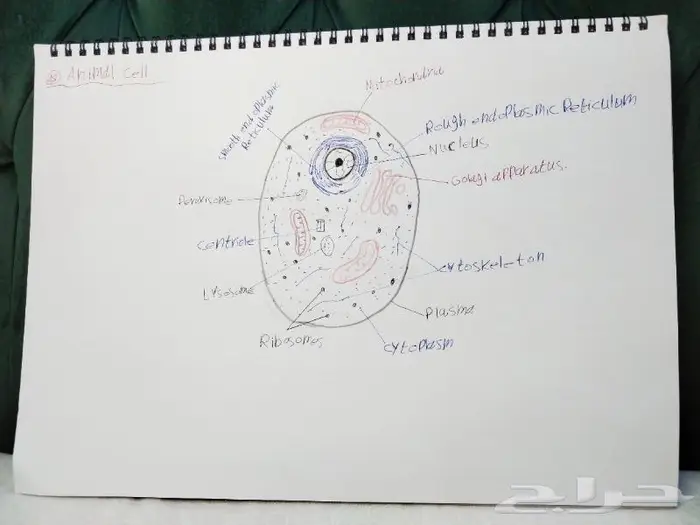 Animal cell
Mitochondria
Smooth endoplasmic
Reticulum
Rough endoplasmic Reticulum
Nucleus
Golgi apparatus.
Peroxisome
Centriole
Cytoskeleton
Lysosome
Plasma
Ribosomes
Cytoplasm
حراج